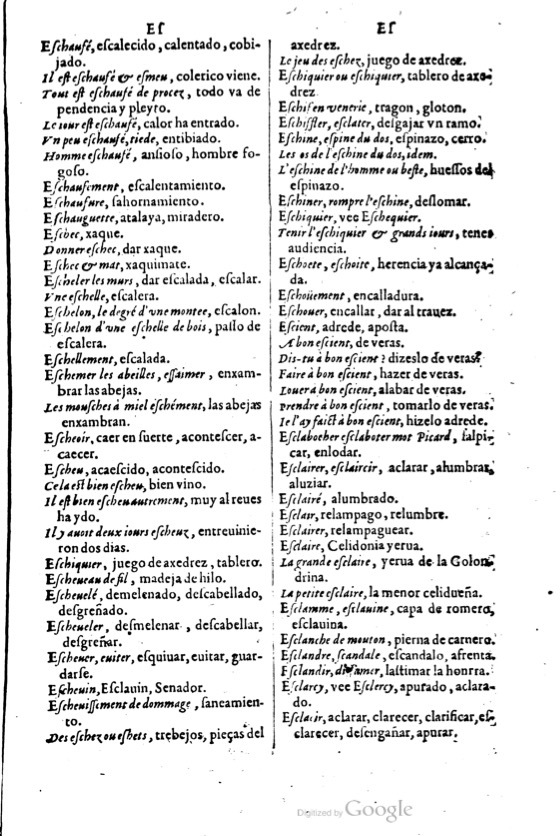 Eſ
Eſchaufé, eſcalecido, calentado, cobi-
jado.
Il eſt eſchaufé & eſmeu, colerico viene.
Tout eſt eſchaufé de procez, todo va de
pendencia y pleyto.
Le iour eſt eſchaufé, calor ha entrado.
Vn peu eſchaufé, tiede, entibiado.
Homme eſchaufé, anſioſo, hombre fo-
goſo.
Eſchaufement, eſcalentamiento.
Eſchaufure, ſahornamiento.
Eſchauguette, atalaya, miradero.
Eſchec, xaque.
Donner eſchec, dar xaque.
Eſchec & mat, xaquimate.
Eſcheler les murs, dar eſcalada, eſcalar.
Vne eſchelle, eſcalera.
Eſchelon, le degré d'vne montee, eſcalon.
Eſchelon d'vne eſchelle de bois, paſſo de
eſcalera.
Eſchellement, eſcalada.
Eſchemer les abeilles, eſſaimer, enxam-
brar las abejas.
Les mouſches à miel eſchément, las abejas
enxambran.
Eſcheoir, caer en ſuerte, aconteſcer, a-
caecer.
Eſcheu, acaeſcido, aconteſcido.
Cela eſt bien eſcheu, bien vino.
Il eſt bien eſcheu autrement, muy al reues
ha ydo.
Il y auoit deux iours eſcheuz, entreuinie-
ron dos dias.
Eſchiquier, juego de axedrez, tablero.
Eſcheueau de fil, madeja de hilo.
Eſcheuelé, demelenado, deſcabellado,
deſgreñado.
Eſcheueler, deſmelenar, deſcabellar,
deſgreñar.
Eſcheuer, euiter, eſquiuar, euitar, guar-
darſe.
Eſcheuin, Eſclauin, Senador.
Eſcheuiſſement de dommage, ſaneamien-
to.
Des eſchez ou eſhets, trebejos, pieças del
Eſ
axedrez.
Le jeu des eſchez, juego de axedrez.
Eſchiquier ou eſchiquier, tablero de axe-
drez
Eſchif en venerie, tragon, gloton.
Eſchiſſler, eſclater, deſgajar vn ramo.
Eſchine, eſpine du dos, eſpinazo, cerro.
Les os de l'eſchine du dos, idem.
L'eſchine de l'homme ou beſte, hueſſos del
eſpinazo.
Eſchiner, rompre l'eſchine, deſlomar.
Eſchiquier, vee Eſchequier.
Tenir l'eſchiquier & grands iours, tener
audiencia.
Eſchoete, eſchoite, herencia ya alcança-
da.
Eſchoüement, encalladura.
Eſchouer, encallar, dar al trauez.
Eſcient, adrede, apoſta.
A bon eſcient, de veras.
Dis-tu à bon eſcient? dizeslo de veras?
Faire à bon eſcient, hazer de veras.
Louer à bon eſcient, alabar de veras.
Prendre à bon eſcient, tomarlo de veras.
Ie l'ay faict à bon eſcient, hizelo adrede.
Eſclaboeher eſclaboter mot Picard, ſalpi-
car, enlodar.
Eſclairer, eſclaircir, aclarar, alumbrar,
aluziar.
Eſclairé, alumbrado.
Eſclair, relampago, relumbre.
Eſclairer, relampaguear.
Eſclaire, Celidonia yerua.
La grande eſclaire, yerua de la Golon
drina.
La petite eſclaire, la menor celidueña.
Eſclamme, eſclauine, capa de romero,
eſclauina.
Eſclanche de mouton, pierna de carnero.
Eſclandre, ſcandale, eſcandalo, afrenta.
Eſclandir, diffamer, laſtimar la honrra.
Eſclarcy, vee Eſclercy, apurado, aclara-
do.
Eſclacir, aclarar, clarecer, clarificar, eſ-
clarecer, deſengañar, apurar.
Digitized by Google